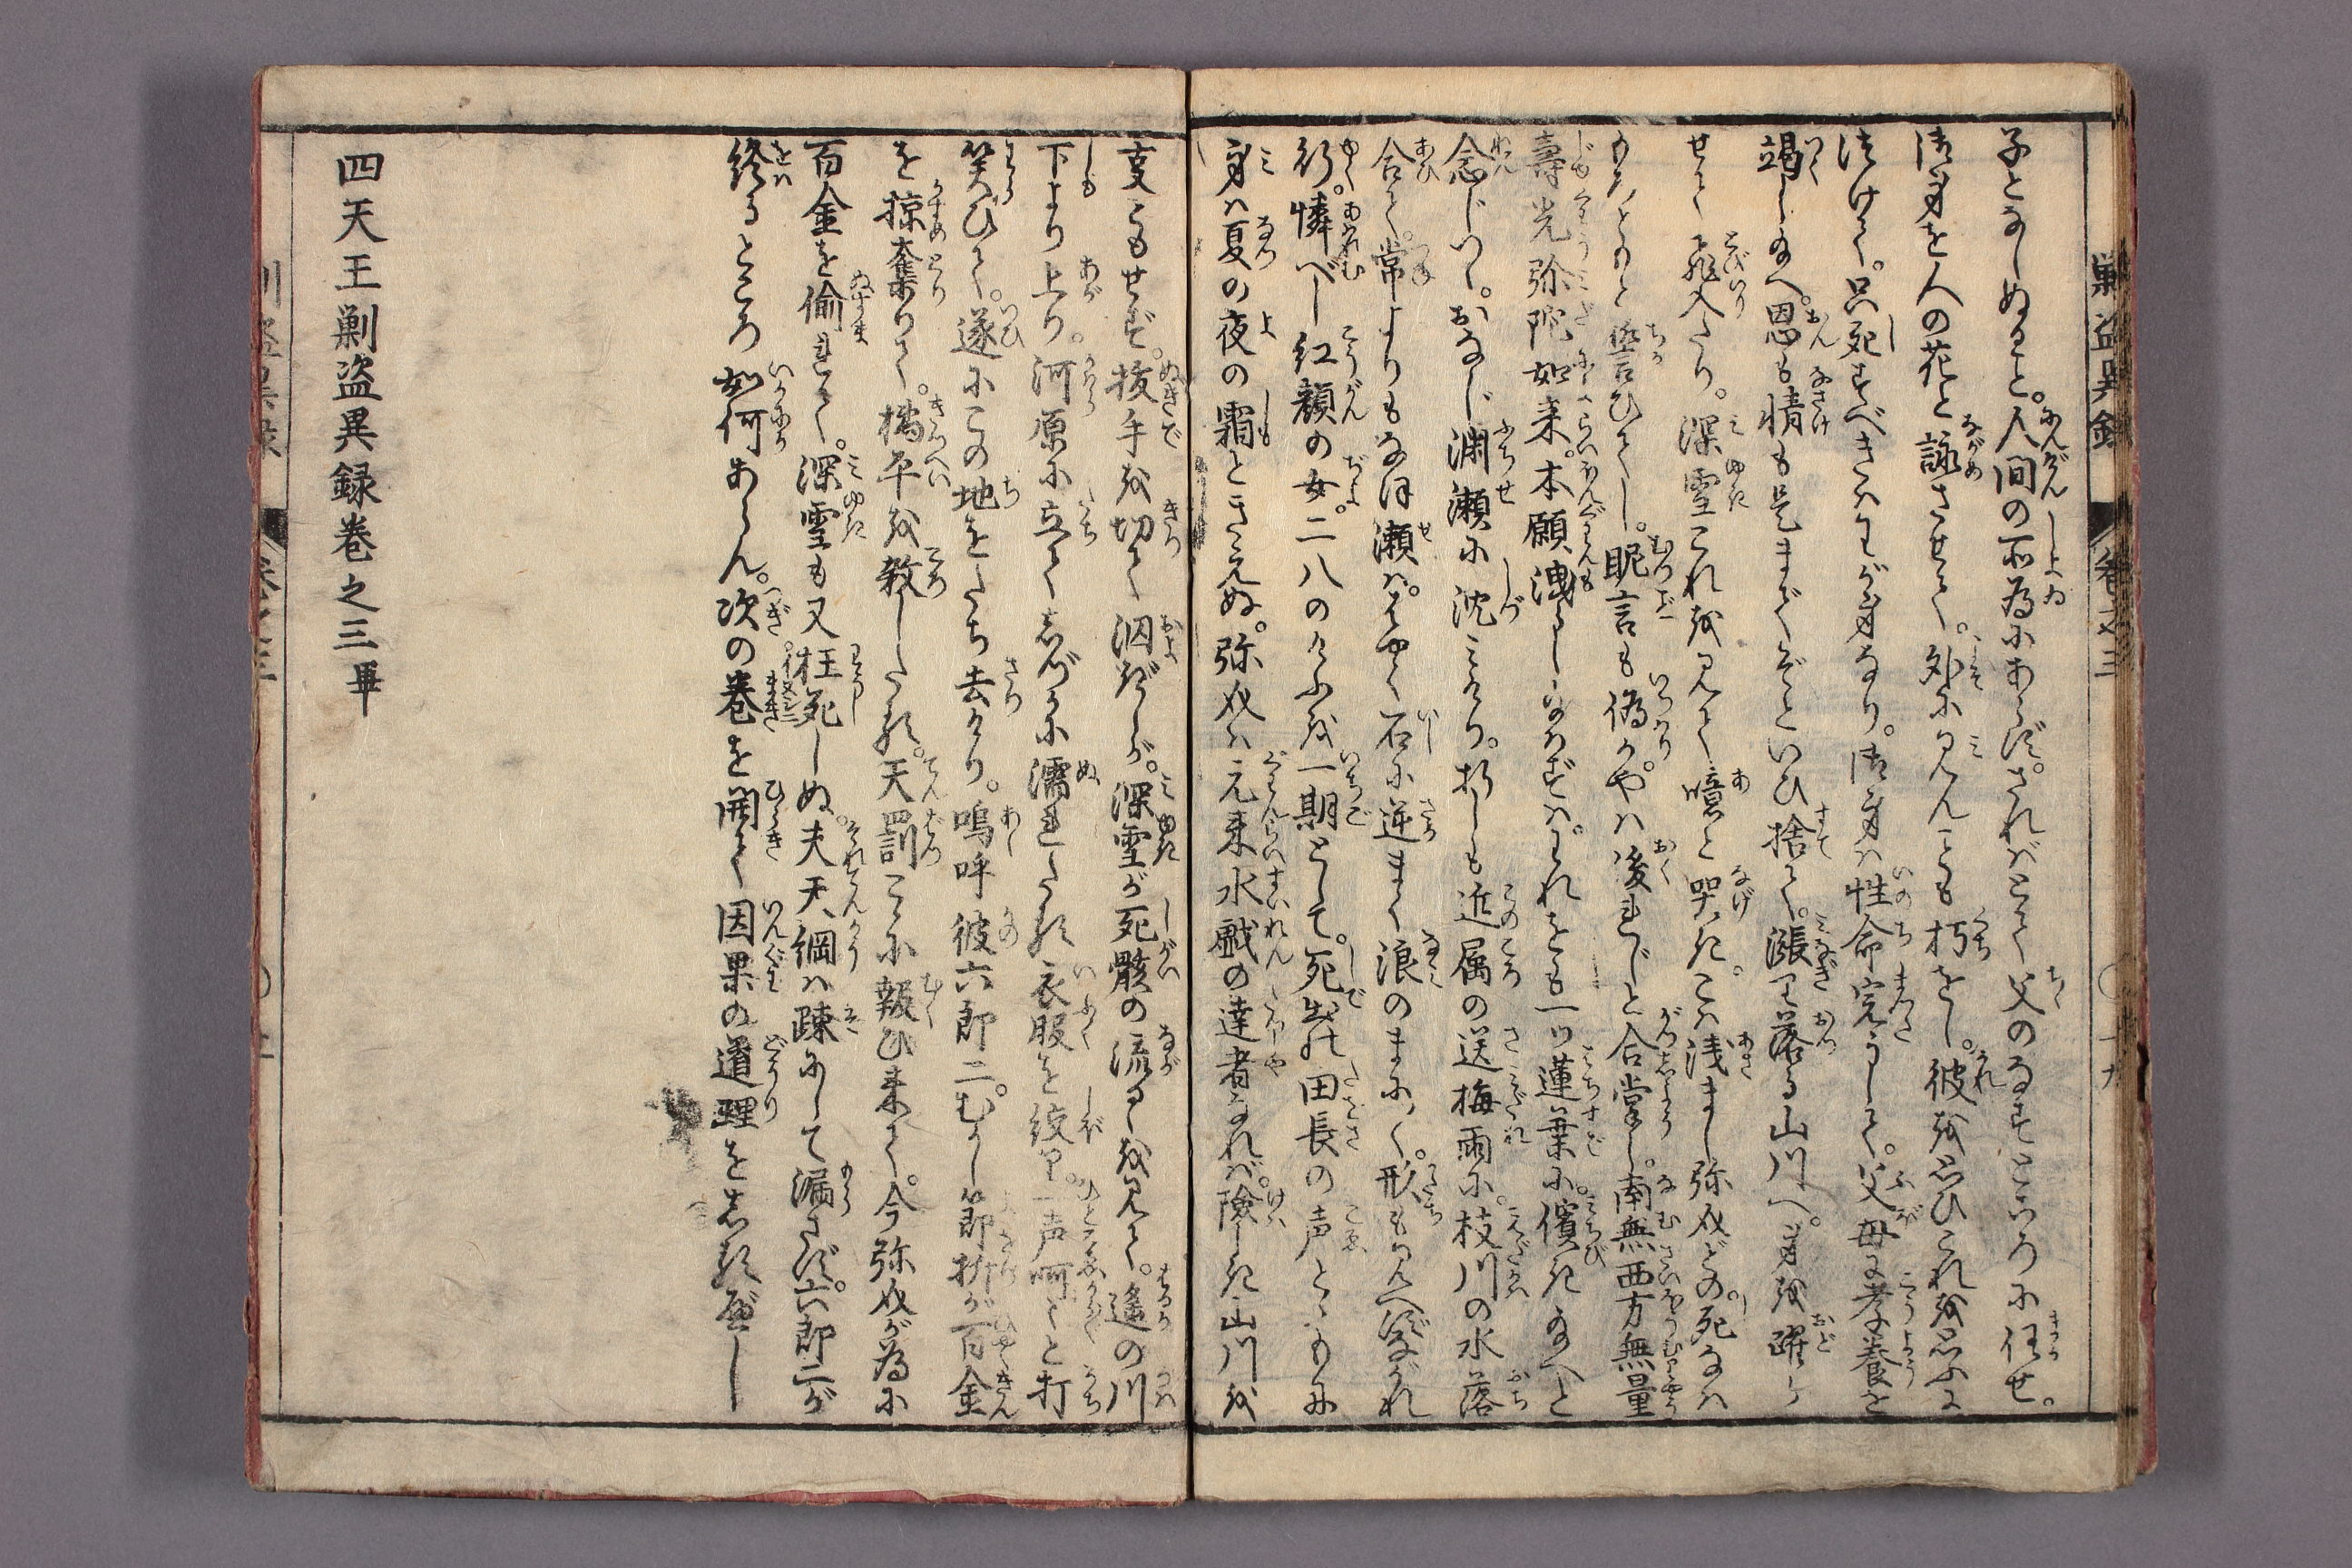 子となしぬると。人間の所為にあらず。さればとて父のなすところに任せ。
御身を人の花と詠させて。外に見んことも朽をし。彼を思ひこれを思ふに
つけて。只死すべきはわが身なり。御身は性命完うして。父母に孝養を
竭し給へ。恩も情も是までぞといひ捨て。漲り落る山川へ。身を躍ら
せて飛入たり。深雪これを見て噫と哭き。こは浅まし弥女どの。死なは
もろともと誓ひてし。昵言も偽かや。いかで後れじと合掌し。南無西方無量
壽光弥陀如来。本願洩らし給はずは。われをも一ツ蓮葉に。儐き給へと
念じつゝ。おなじ渊瀬に沈みけり。折しも近属の送梅雨に。枝川の水落
合て。常よりもなほ瀬は。はやく石に逆まく浪のまに〱。形も見へずながれ
行。憐べし紅顔の女。二八のけふを一期として。死出の田長の声とゝもに
身は夏の夜の霜ときえぬ。弥女は元来水戯の達者なれば。險しき山川を
支ともせず。抜手を切て泅ぎしが。深雪が死骸の流るゝを見て。遙の川
下より上り。河原に立てしづかに濡れたる衣服を絞り。一声呵〻と打
笑ひて。遂にこの地をたち去けり。嗚呼彼六郎二。むかし節折が百金
を掠奪りて。橘平を殺したる。天罰こゝに報ひ来て。今弥女が為に
百金を偷れて。深雪も又枉死しぬ。夫天綱は疎にして漏さず。六郎二が
終るところ如何あらん。次の巻を開て因果の道理をしるべし
四天王剿盗異録巻之三畢
剿盗異録
巻之三